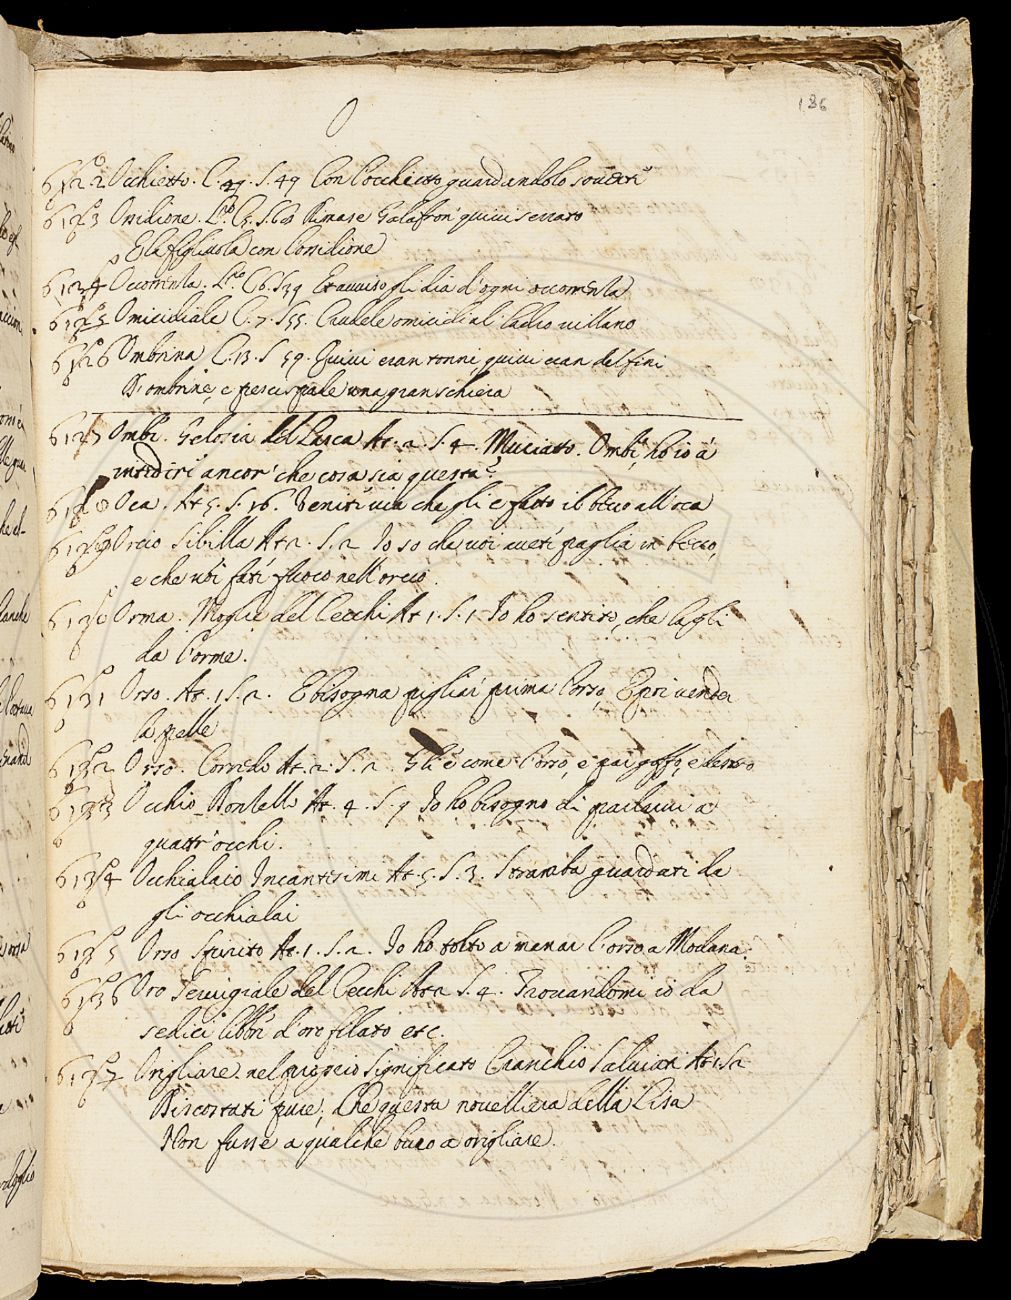 186
O
6122 Occhietto. C. 29. S. 49 Con l'occhietto guardandolo
6123 Ossidione. C. 5. S. 62 Rimase Galafron quivi serrato
E la figliuola con l'ossidione
6124 Occorrenza. C. 6. S. 39 d'ogni occorrenza
6125 Omicidiale C. 7. S. 55. Crudele omicidial ladro villano
6126 Ombrina C. 13. S. 59. Quivi eran tonni, quivi eran delfini
D'ombrine, e pesci spade una gran schiera
6127 Ombè. Gelosia del Lasca At. 2. S. 4. Muciatto. Ombè, ho io a
intender ancor che cosa sia questa?
Oca. At. 5. S. 16. Venite via che gli è fatto il becco all'oca
6129 Orcio Sibilla At. 2. S. 2 Io so che voi avete paglia in becco,
e che voi fate fuoco nell'orcio.
6130 Orma. Moglie del Cecchi At. 1. S. 1. Io ho sentito, che la gli
da l'orme.
6131 Orso. At. 1. S. 2. E bisogna pigliar prima l'orso, E poi vender
la pelle
6132 Orso. Corredo At. 2. S. 2. Gli è come l'orso, e par goffo, e destro
6133 Occhio Donzello At. 4. S. 9 Io ho bisogno di parlarvi a
quattr'occhi.
6134 Occhialaio Incantesimi At. 5. S. 3. Stramba guardati da
gli occhialai
6135 Orso Spirito At. 1. S. 2. Io ho tolto a menar l'orso a Modana.
6136 Oro Servigiale del Cecchi At. 2 S. 4. Trovandomi io da
sedici libbre d'oro filato etc.
6137 Origliare nel proprio significato Granchio Salviati At. 1. S. 2
Discostati pure, Che questa novelliera della Lisa
Non fusse a qualche buco a origliare.